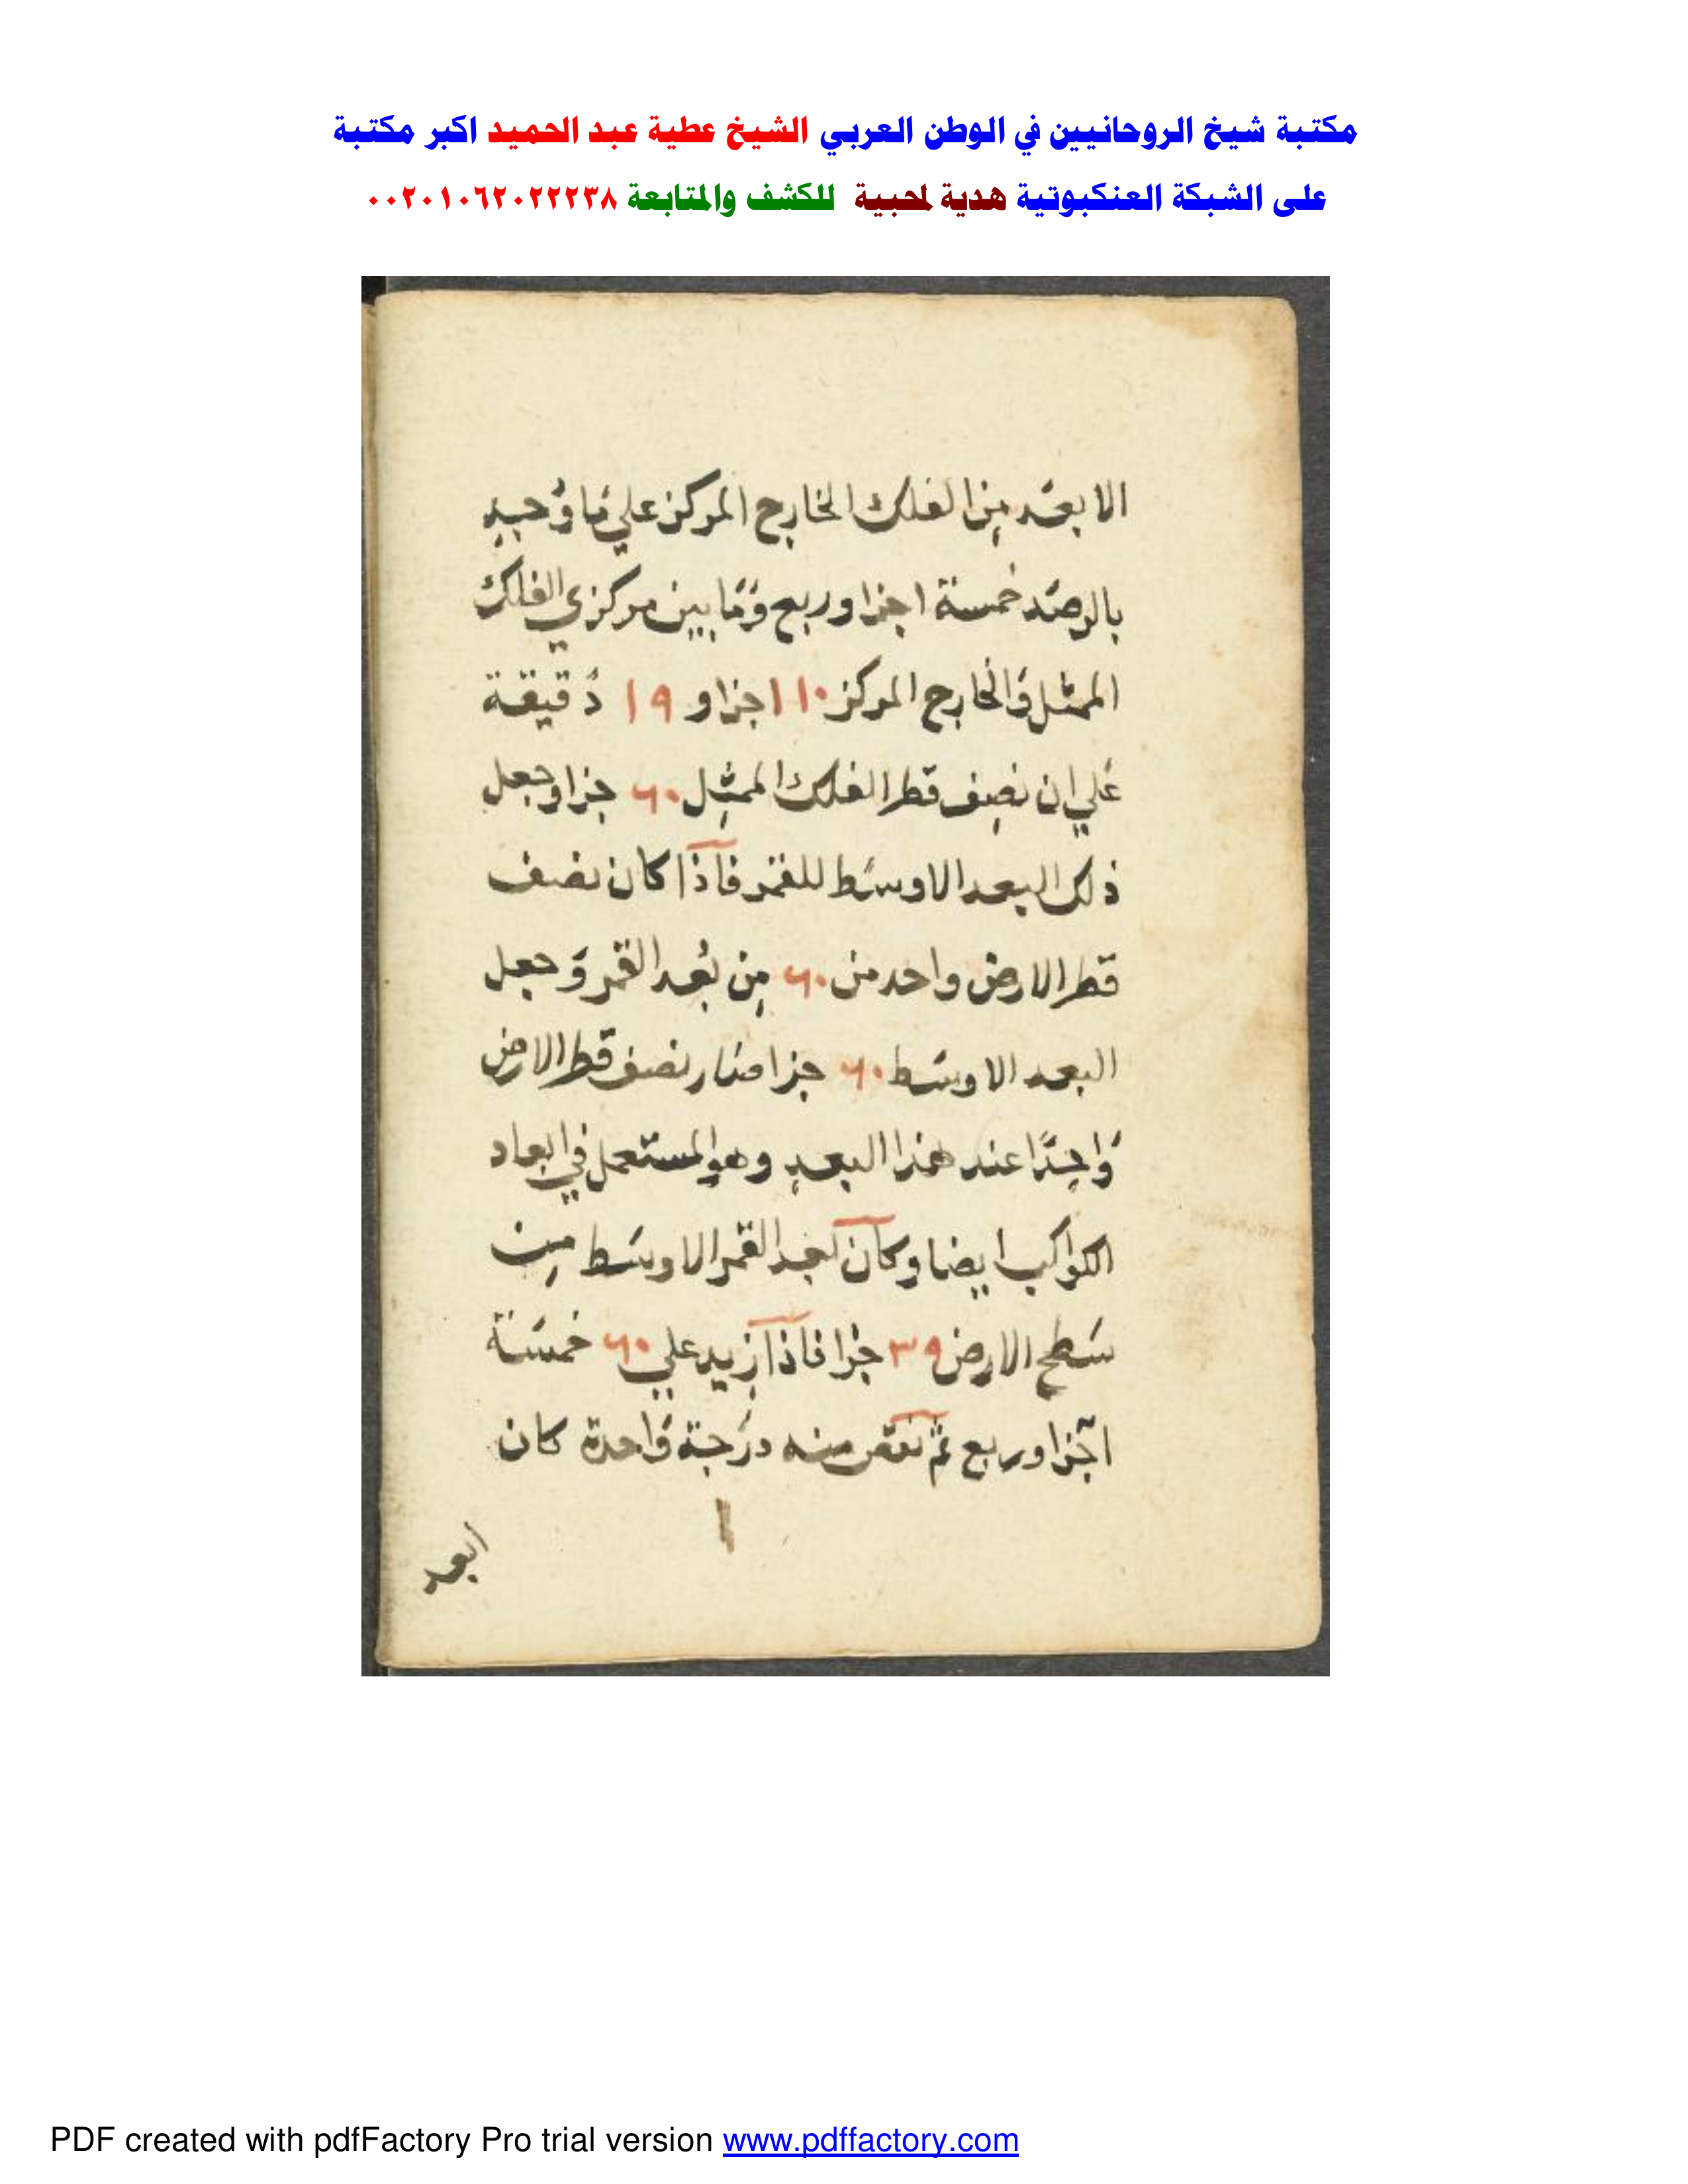 مكتبة شيخ الروحانيين في الوطن العربي الشيخ عطية عبد الحميد اكبر مكتبة
على الشبكة العنكبوتية هدية لمحبية للكشف والمتابعة ٠٠٢٠١٠٦٢٠٢٢٢٣٨
الابعد من الفلك الخارج المركز علي ما وجد
بالرصد خمسة اجزا وربع وما بين مركزي الفلك
الممثل والخارج المركز ١٠ اجزا و ١٩ دقيقة
علي ان نصف قطر الفلك الممثل ٦٠ جزا وجعل
ذلك البعد الاوسط للقمر فاذا كان نصف
قطر الارض واحد من ٦٠ من بعد القمر وجعل
البعد الاوسط ٦٠ جزا صار نصف قطر الارض
واحدًا عند هذا البعد وهو المستعمل في ابعاد
الكواكب ايضا وكان بعد القمر الاوسط من
سطح الارض ٣٩ جزا فاذا زيد علي ٦٠ خمسة
اجزا وربع ثم نقص منه درجة واحدة كان
ابعد
PDF created with pdfFactory Pro trial version www.pdffactory.com